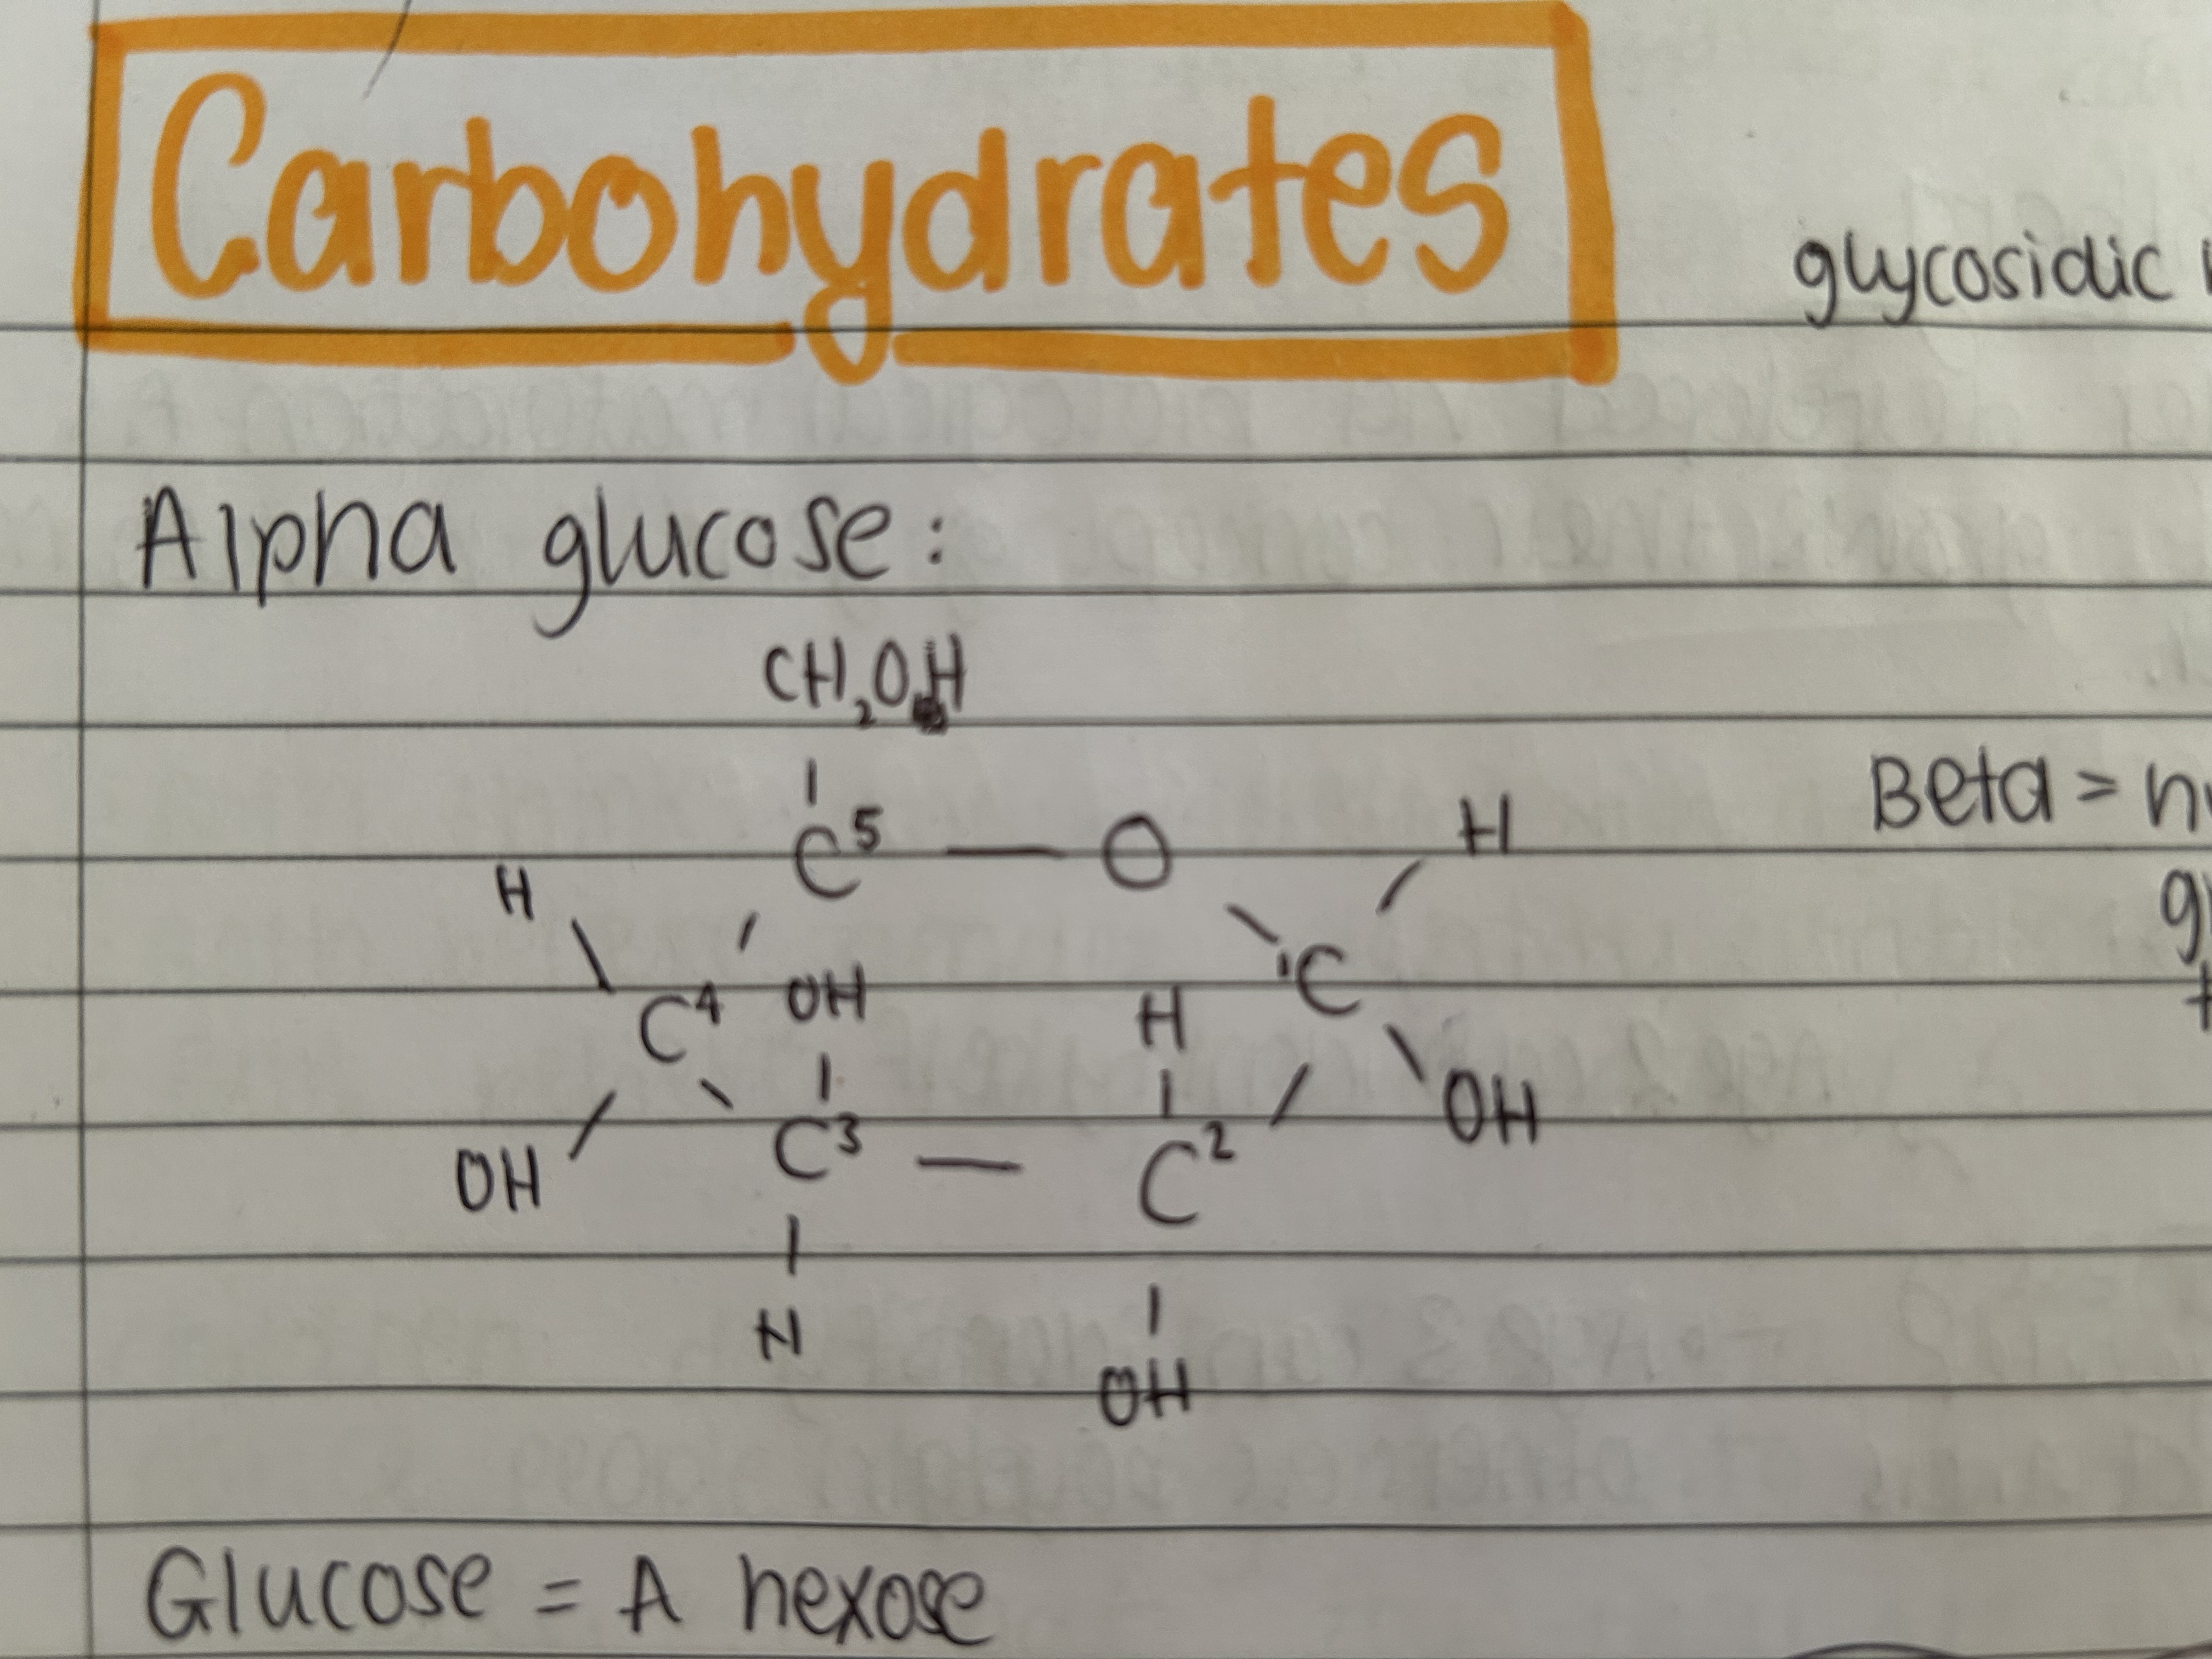 Carbohydrates
glycosidic
Alpha glucose:
CH₂OH
C⁵ — O
H
Beta =
H
C⁴
OH
H
¹C
OH
C³ — C²
OH
H
OH
Glucose = A hexose